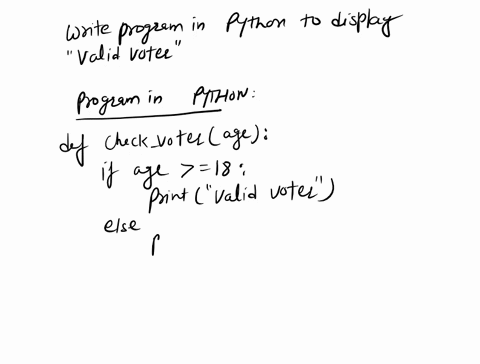 Write program in Python to display
"Valid voter"
Program in PYTHON:
def check_voter(age):
if age >=18:
print("Valid voter")
else
p